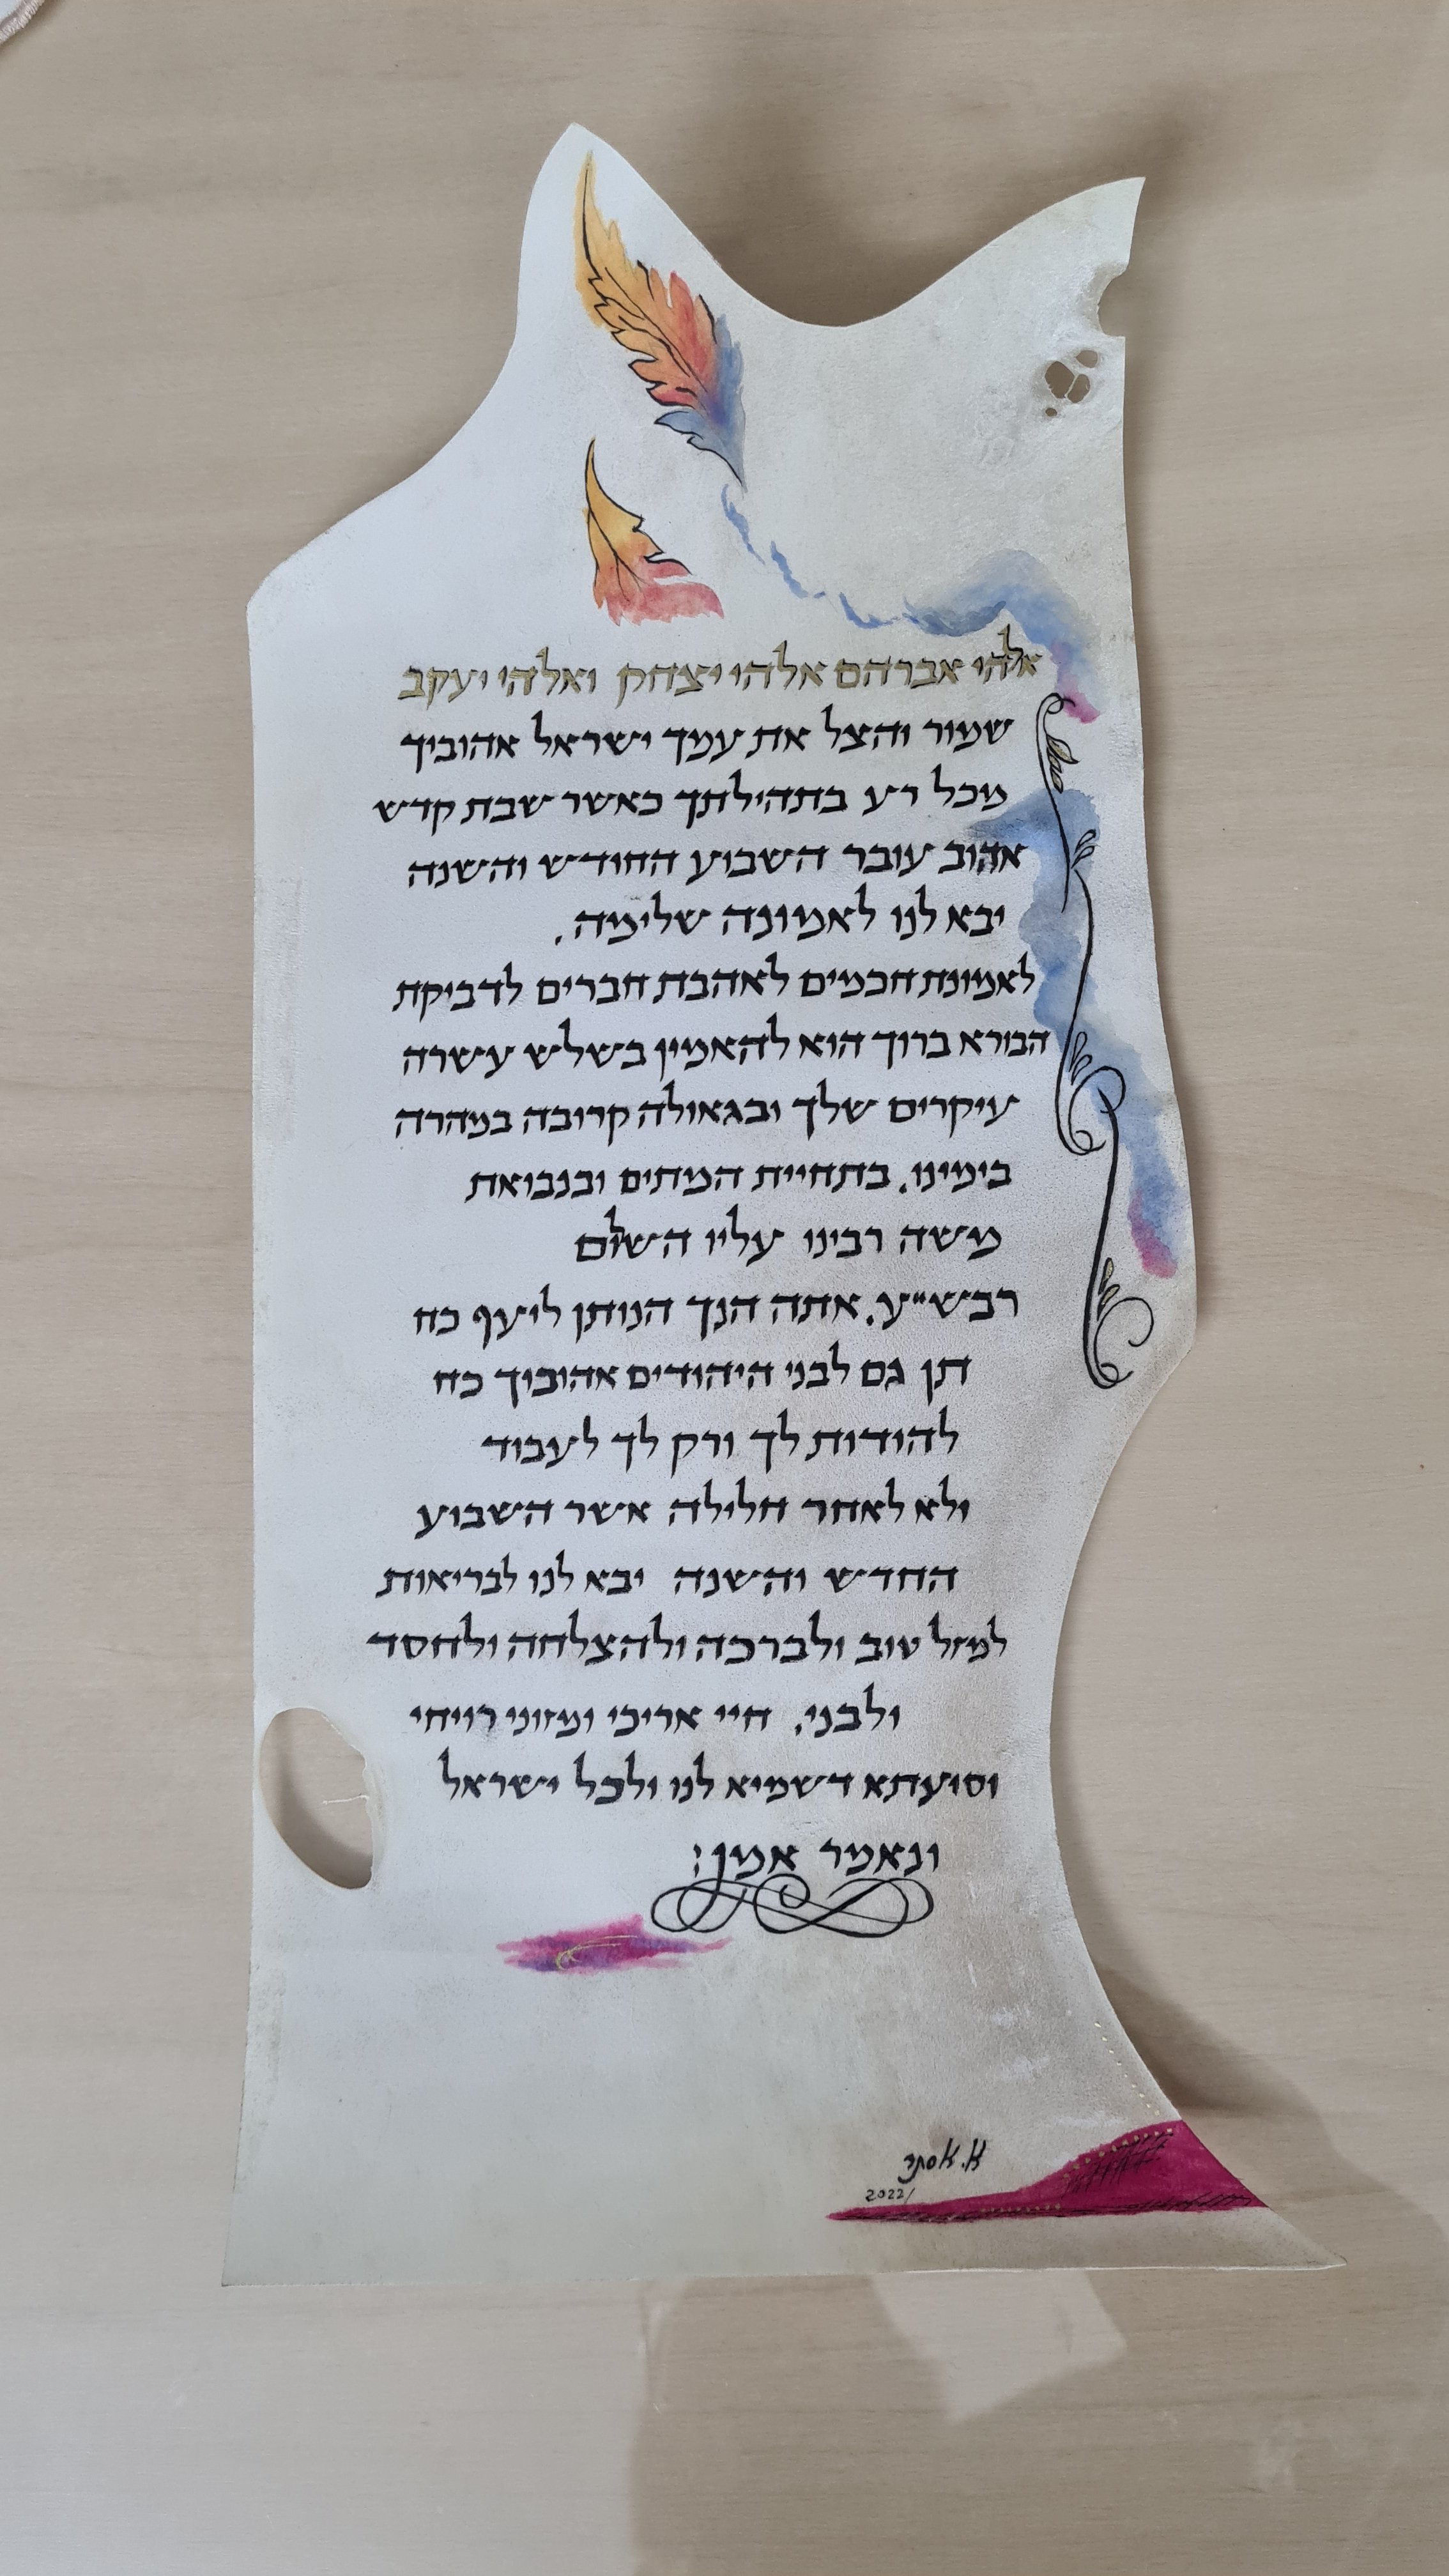 אלהי אברהם אלהי יצחק ואלהי יעקב
שמור והצל את עמך ישראל אהוביך
מכל רע בתהילתך כאשר שבת קדש
אהוב עובר השבוע החודש והשנה
יבא לנו לאמונה שלימה.
לאמונת חכמים לאהבת חברים לדביקת
הבורא ברוך הוא להאמין בשלש עשרה
עיקרים שלך ובגאולה קרובה במהרה
בימינו. בתחיית המתים ובנבואת
משה רבינו עליו השלום
רבש"ע. אתה הנך הנותן ליעף כח
תן גם לבני היהודים אהוביך כח
להודות לך ורק לך לעבוד
ולא לאחר חלילה אשר השבוע
החדש והשנה יבא לנו לבריאות
למזל טוב ולברכה ולהצלחה ולחסד
ולבני. חיי אריכי ומזוני רויחי
וסיעתא דשמיא לנו ולכל ישראל
ונאמר אמן:
א. אסתר
2022